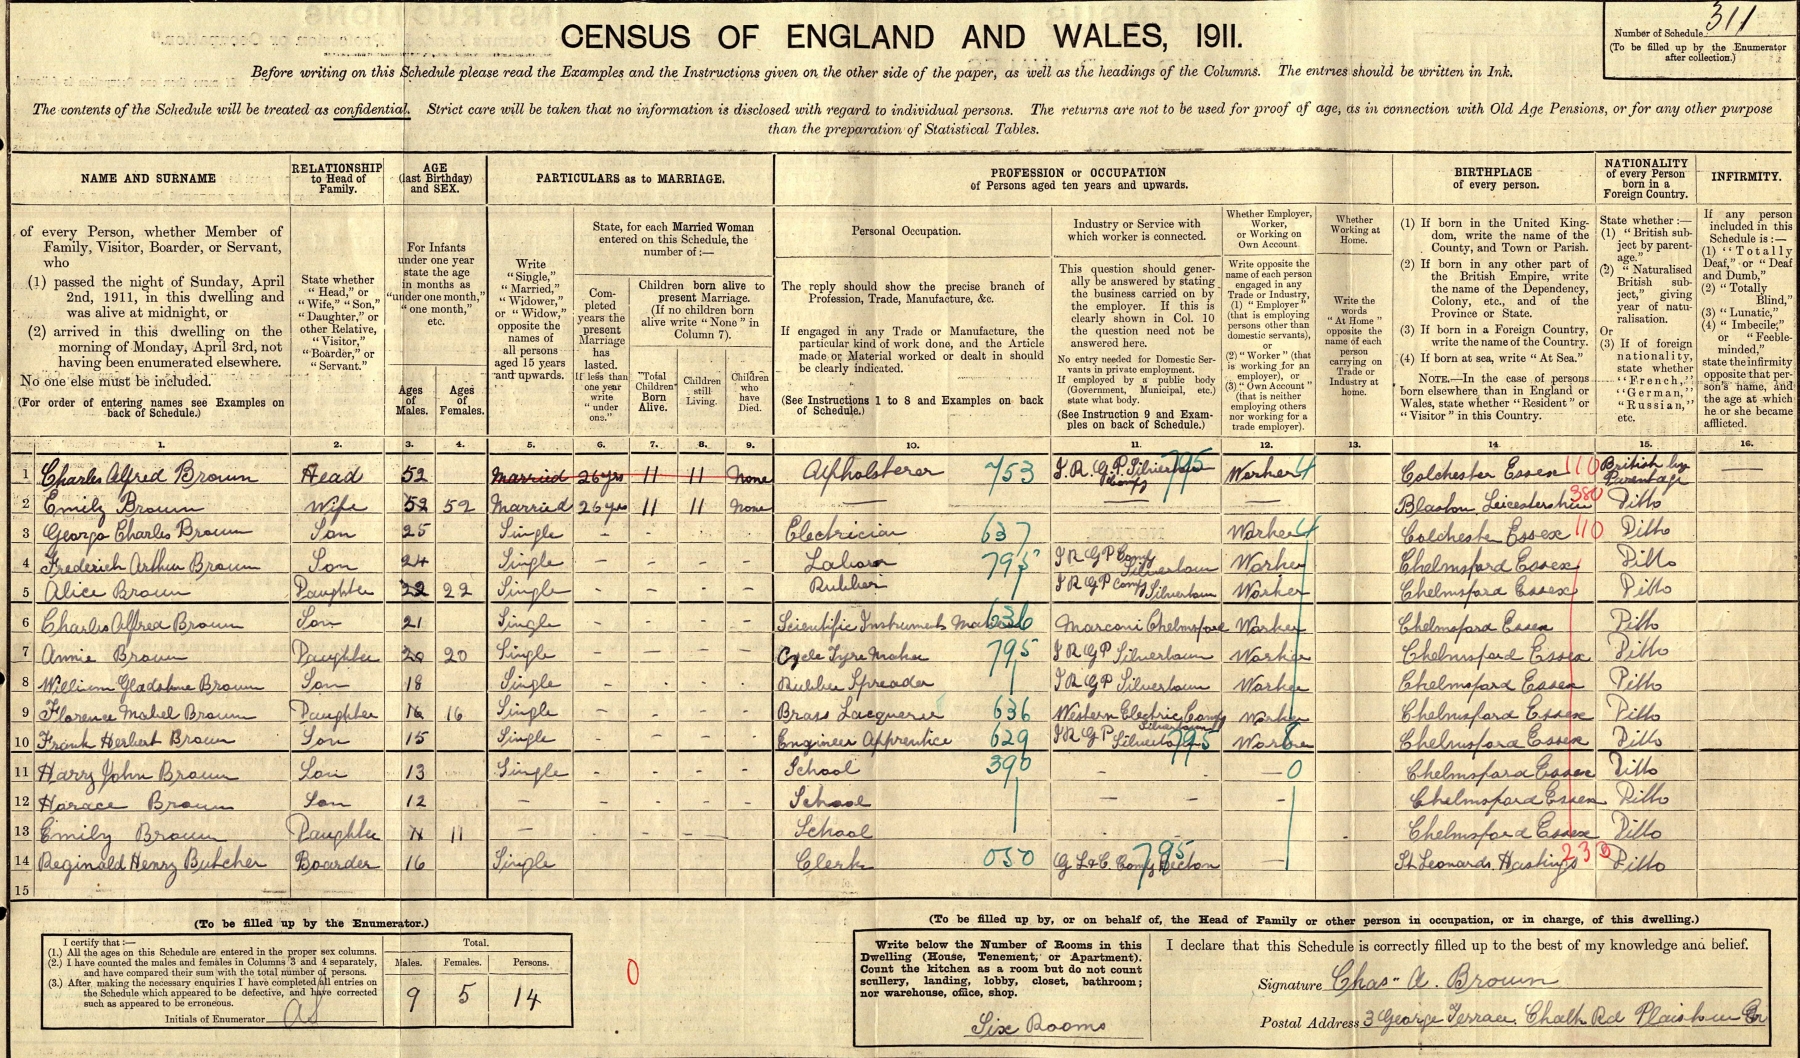 CENSUS OF ENGLAND AND WALES, 1911.
Number of Schedule 311
(To be filled up by the Enumerator after collection.)
Before writing on this Schedule please read the Examples and the Instructions given on the other side of the paper, as well as the headings of the Columns. The entries should be written in Ink.
The contents of the Schedule will be treated as confidential. Strict care will be taken that no information is disclosed with regard to individual persons. The returns are not to be used for proof of age, as in connection with Old Age Pensions, or for any other purpose
than the preparation of Statistical Tables.
NAME AND SURNAME
of every Person, whether Member of Family, Visitor, Boarder, or Servant, who
(1) passed the night of Sunday, April 2nd, 1911, in this dwelling and was alive at midnight, or
(2) arrived in this dwelling on the morning of Monday, April 3rd, not having been enumerated elsewhere.
No one else must be included.
(For order of entering names see Examples on back of Schedule.)
RELATIONSHIP to Head of Family.
State whether "Head," or "Wife," "Son," "Daughter," or other Relative, "Visitor," "Boarder," or "Servant."
AGE (last Birthday) and SEX.
For Infants under one year state the age in months as "under one month," "one month," etc.
Ages of Males.
Ages of Females.
PARTICULARS as to MARRIAGE.
Write "Single," "Married," "Widower," or "Widow," opposite the names of all persons aged 15 years and upwards.
State, for each Married Woman entered on this Schedule, the number of:—
Completed years the present Marriage has lasted. If less than one year write "under one."
Children born alive to present Marriage. (If no children born alive write "None" in Column 7).
Total Children Born Alive.
Children still Living.
Children who have Died.
PROFESSION or OCCUPATION
of Persons aged ten years and upwards.
Personal Occupation.
The reply should show the precise branch of Profession, Trade, Manufacture, &c.
If engaged in any Trade or Manufacture, the particular kind of work done, and the Article made or Material worked or dealt in should be clearly indicated.
(See Instructions 1 to 8 and Examples on back of Schedule.)
Industry or Service with which worker is connected.
This question should generally be answered by stating the business carried on by the employer. If this is clearly shown in Col. 10 the question need not be answered here.
No entry needed for Domestic Servants in private employment. If employed by a public body (Government, Municipal, etc.) state what body.
(See Instruction 9 and Examples on back of Schedule.)
Whether Employer, Worker, or Working on Own Account
Write opposite the name of each person engaged in any Trade or Industry, (1) "Employer" (that is employing persons other than domestic servants), or (2) "Worker" (that is working for an employer), or (3) "Own Account" (that is neither employing others nor working for a trade employer).
Whether Working at Home.
Write the words "At Home" opposite the name of each person carrying on Trade or Industry at home.
BIRTHPLACE of every person.
(1) If born in the United Kingdom, write the name of the County, and Town or Parish.
(2) If born in any other part of the British Empire, write the name of the Dependency, Colony, etc., and of the Province or State.
(3) If born in a Foreign Country, write the name of the Country.
(4) If born at sea, write "At Sea."
NOTE.—In the case of persons born elsewhere than in England or Wales, state whether "Resident" or "Visitor" in this Country.
NATIONALITY of every Person born in a Foreign Country.
State whether:—
(1) "British subject by parentage."
(2) "Naturalised British subject," giving year of naturalisation.
Or
(3) If of foreign nationality, state whether "French," "German," "Russian," etc.
INFIRMITY.
If any person included in this Schedule is:—
(1) "Totally Deaf," or "Deaf and Dumb,"
(2) "Totally Blind,"
(3) "Lunatic,"
(4) "Imbecile," or "Feeble-minded,"
state the infirmity opposite that person's name, and the age at which he or she became afflicted.
1. 2. 3. 4. 5. 6. 7. 8. 9. 10. 11. 12. 13. 14. 15. 16.
1 Charles Alfred Brown Head 52 Married 26 yrs 11 11 None Upholsterer 753 I.R.G.P. Silvertown 795 Worker 4 Colchester Essex 110 British by Parentage
2 Emily Brown Wife 52 52 Married 26 yrs 11 11 None Blaston Leicestershire 380 Ditto
3 George Charles Brown Son 25 Single Electrician 637 Worker 4 Colchester Essex 110 Ditto
4 Frederick Arthur Brown Son 24 Single Labourer 795 I R G P Comp Silvertown Worker Chelmsford Essex Ditto
5 Alice Brown Daughter 22 22 Single Rubber I R G P Comp Silvertown Worker Chelmsford Essex Ditto
6 Charles Alfred Brown Son 21 Single Scientific Instrument Maker 636 Marconi Chelmsford Worker Chelmsford Essex Ditto
7 Annie Brown Daughter 20 20 Single Cycle Tyre Maker 795 I R G P Silvertown Worker Chelmsford Essex Ditto
8 William Gladstone Brown Son 18 Single Rubber Spreader I R G P Silvertown Worker Chelmsford Essex Ditto
9 Florence Mabel Brown Daughter 16 16 Single Brass Lacquerer 636 Western Electric Comp Silvertown Worker Chelmsford Essex Ditto
10 Frank Herbert Brown Son 15 Single Engineer Apprentice 629 I R G P Silvertown 795 Worker Chelmsford Essex Ditto
11 Harry John Brown Son 13 Single School 390 0 Chelmsford Essex Ditto
12 Horace Brown Son 12 School Chelmsford Essex Ditto
13 Emily Brown Daughter 11 11 School Chelmsford Essex Ditto
14 Reginald Henry Butcher Boarder 16 Single Clerk 050 G L & C Comp Becton 795 St Leonards Hastings 230 Ditto
15
(To be filled up by the Enumerator.)
I certify that:—
(1.) All the ages on this Schedule are entered in the proper sex columns.
(2.) I have counted the males and females in Columns 3 and 4 separately, and have compared their sum with the total number of persons.
(3.) After making the necessary enquiries I have completed all entries on the Schedule which appeared to be defective, and have corrected such as appeared to be erroneous.
Initials of Enumerator
Total.
Males. Females. Persons.
9 5 14
0
(To be filled up by, or on behalf of, the Head of Family or other person in occupation, or in charge, of this dwelling.)
Write below the Number of Rooms in this Dwelling (House, Tenement, or Apartment). Count the kitchen as a room but do not count scullery, landing, lobby, closet, bathroom; nor warehouse, office, shop.
Six Rooms
I declare that this Schedule is correctly filled up to the best of my knowledge and belief.
Signature Chas. A. Brown
Postal Address 3 George Terrace. Chalk Rd Plaistow